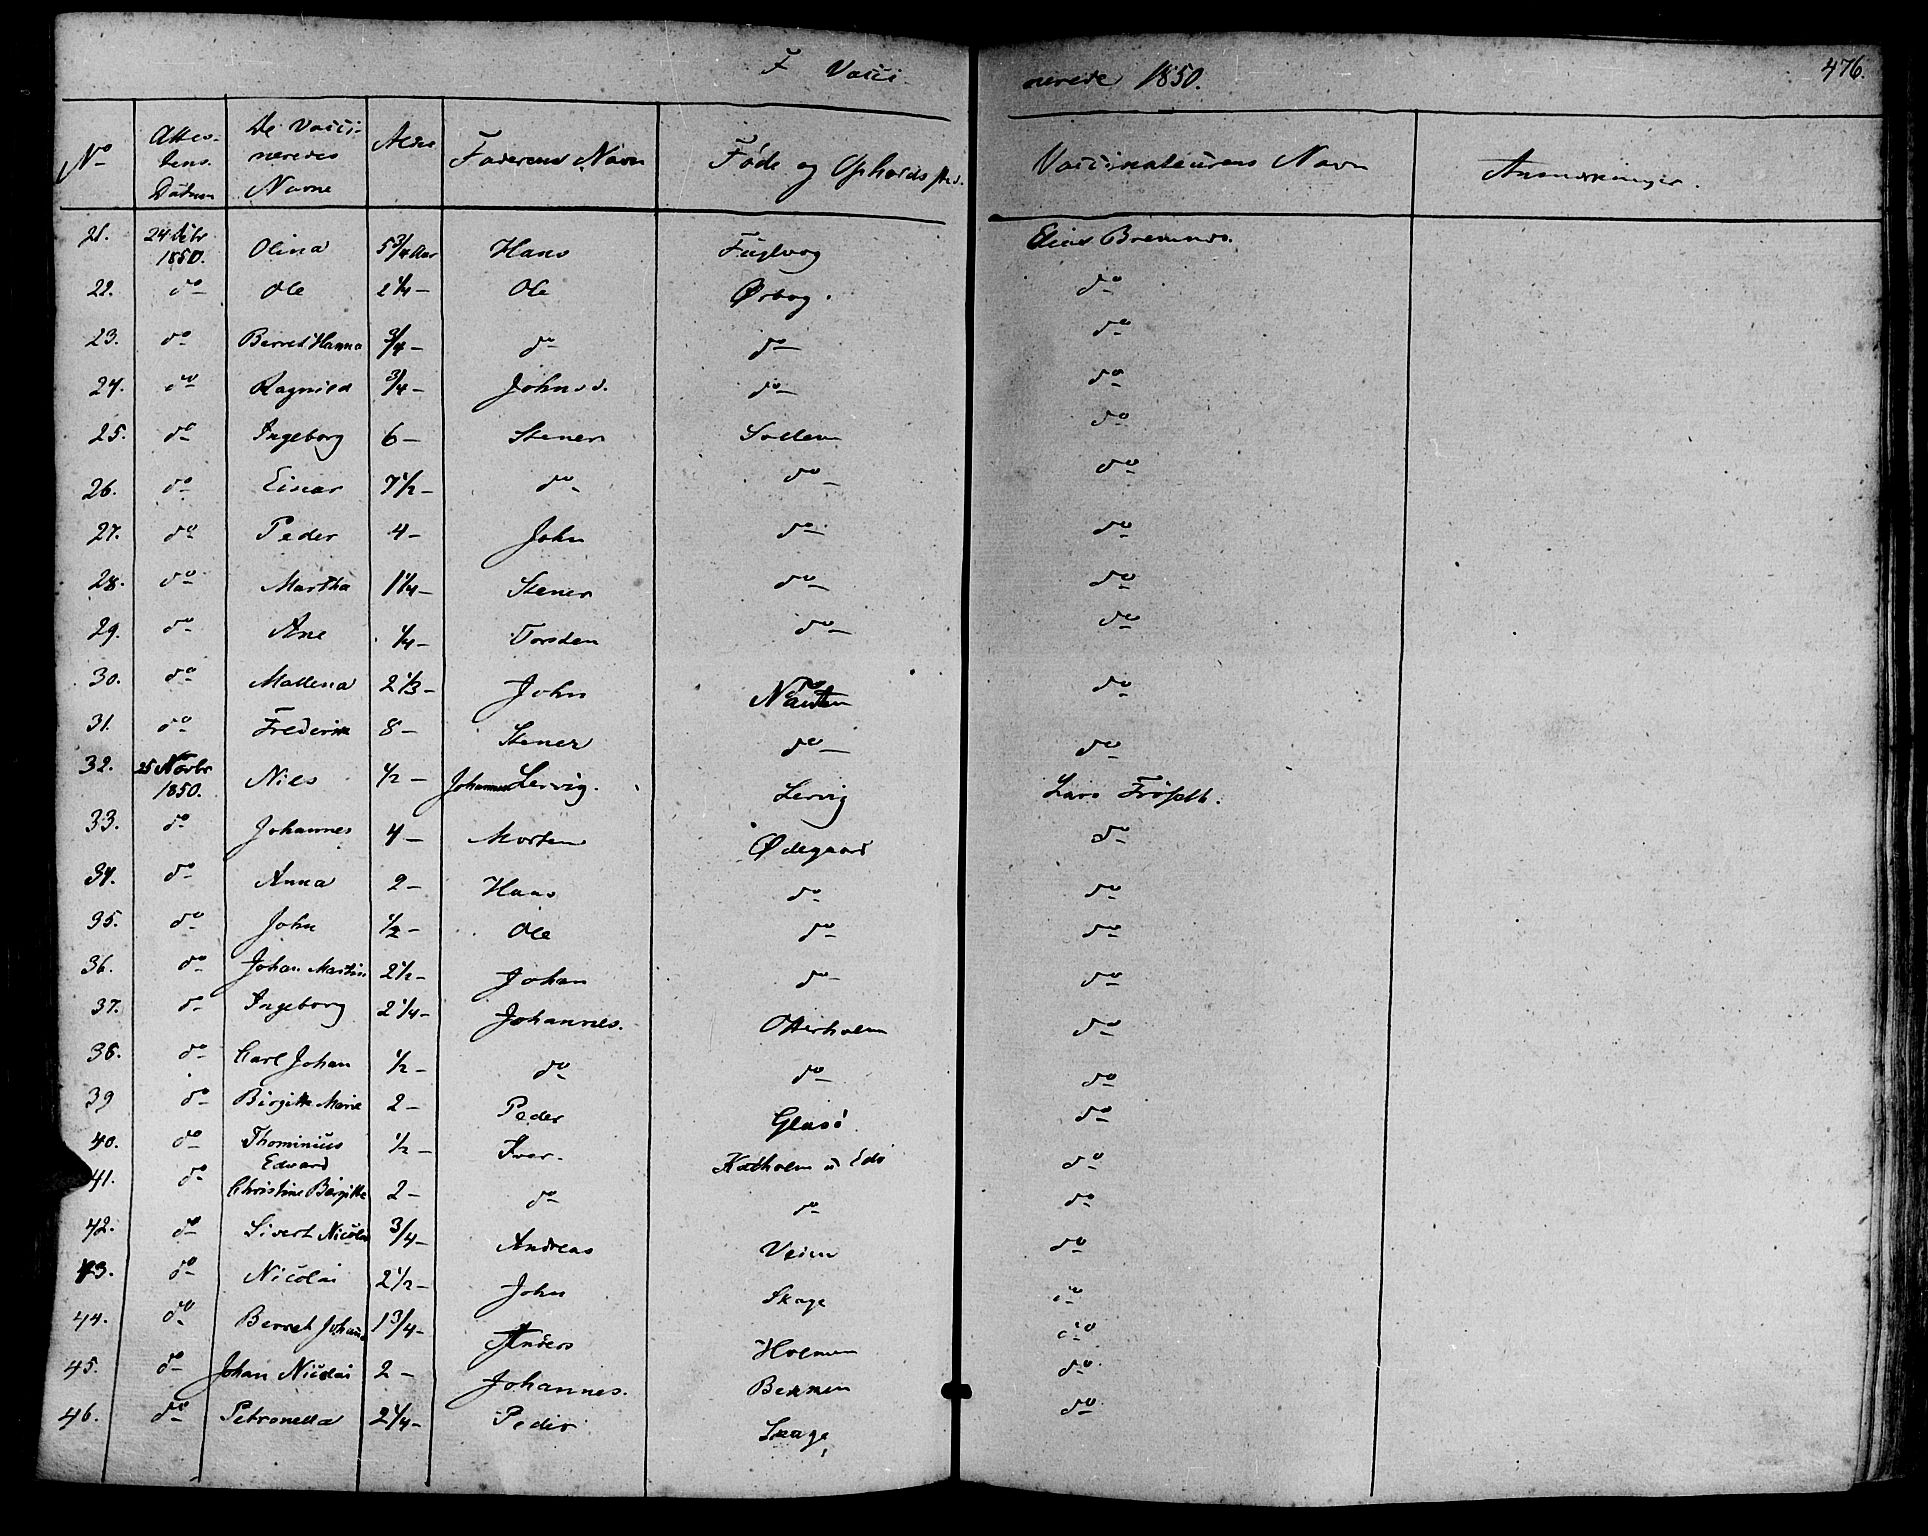 F Vacci-
nerede 1850.
476.
No
Attes-
tens.
Datum
De Vacci-
neredes
Navne
Alder
Faderens Navn
Føde og Opholds sted.
Vaccinateurens Navn
Anmærkninger.
21. 24 Octbr 1850. Olina 5 3/4 Aar Hans Fuglvog Elias Bremnes.
22. do Ole 2 1/4 – Ole Ørbog. do
23. do Berret Hanna 3/4 – do do do
24. do Ragnild 3/4 – John do do
25. do Ingeborg 6 – Stener Sollem do
26. do Einar 7 1/2 – do do do
27. do Peder 4 – John do do
28. do Martha 1 1/4 – Stener do do
29. do Ane 1/4 – Torsden do do
30. do Mallena 2 1/3 – John Nausten do
31. do Frederik 8 – Stener do do
32. 25 Novbr 1850. Nils 1/2 – Johannes Lervig. Lervig Lars Frøseth.
33. do Johannes 4 – Morten Ødegaard do
34. do Anna 2 – Hans do do
35. do John 1/2 – Ole do do
36. do Johan Martin 2 1/2 – Johan do do
37. do Ingeborg 2 1/4 – Johannes. Otterholm do
38. do Carl Johan 1/2 – do do do
39 do Birgitte Marie 2 – Peder Glasø do
40. do Thominius Edvard 1/2 – Iver. Kadholm u Ede do
41. do Christine Birgitte 2 – do do do
42. do Sivert Nicolai 3/4 – Andreas Veien do
43. do Nicolai 2 1/2 – John Skage do
44. do Berret Johana 1 3/4 – Anders Holmen do
45. do Johan Nicolai 2 – Johannes. Bekken do
46. do Petronella 2 1/4 – Peder Skage, do